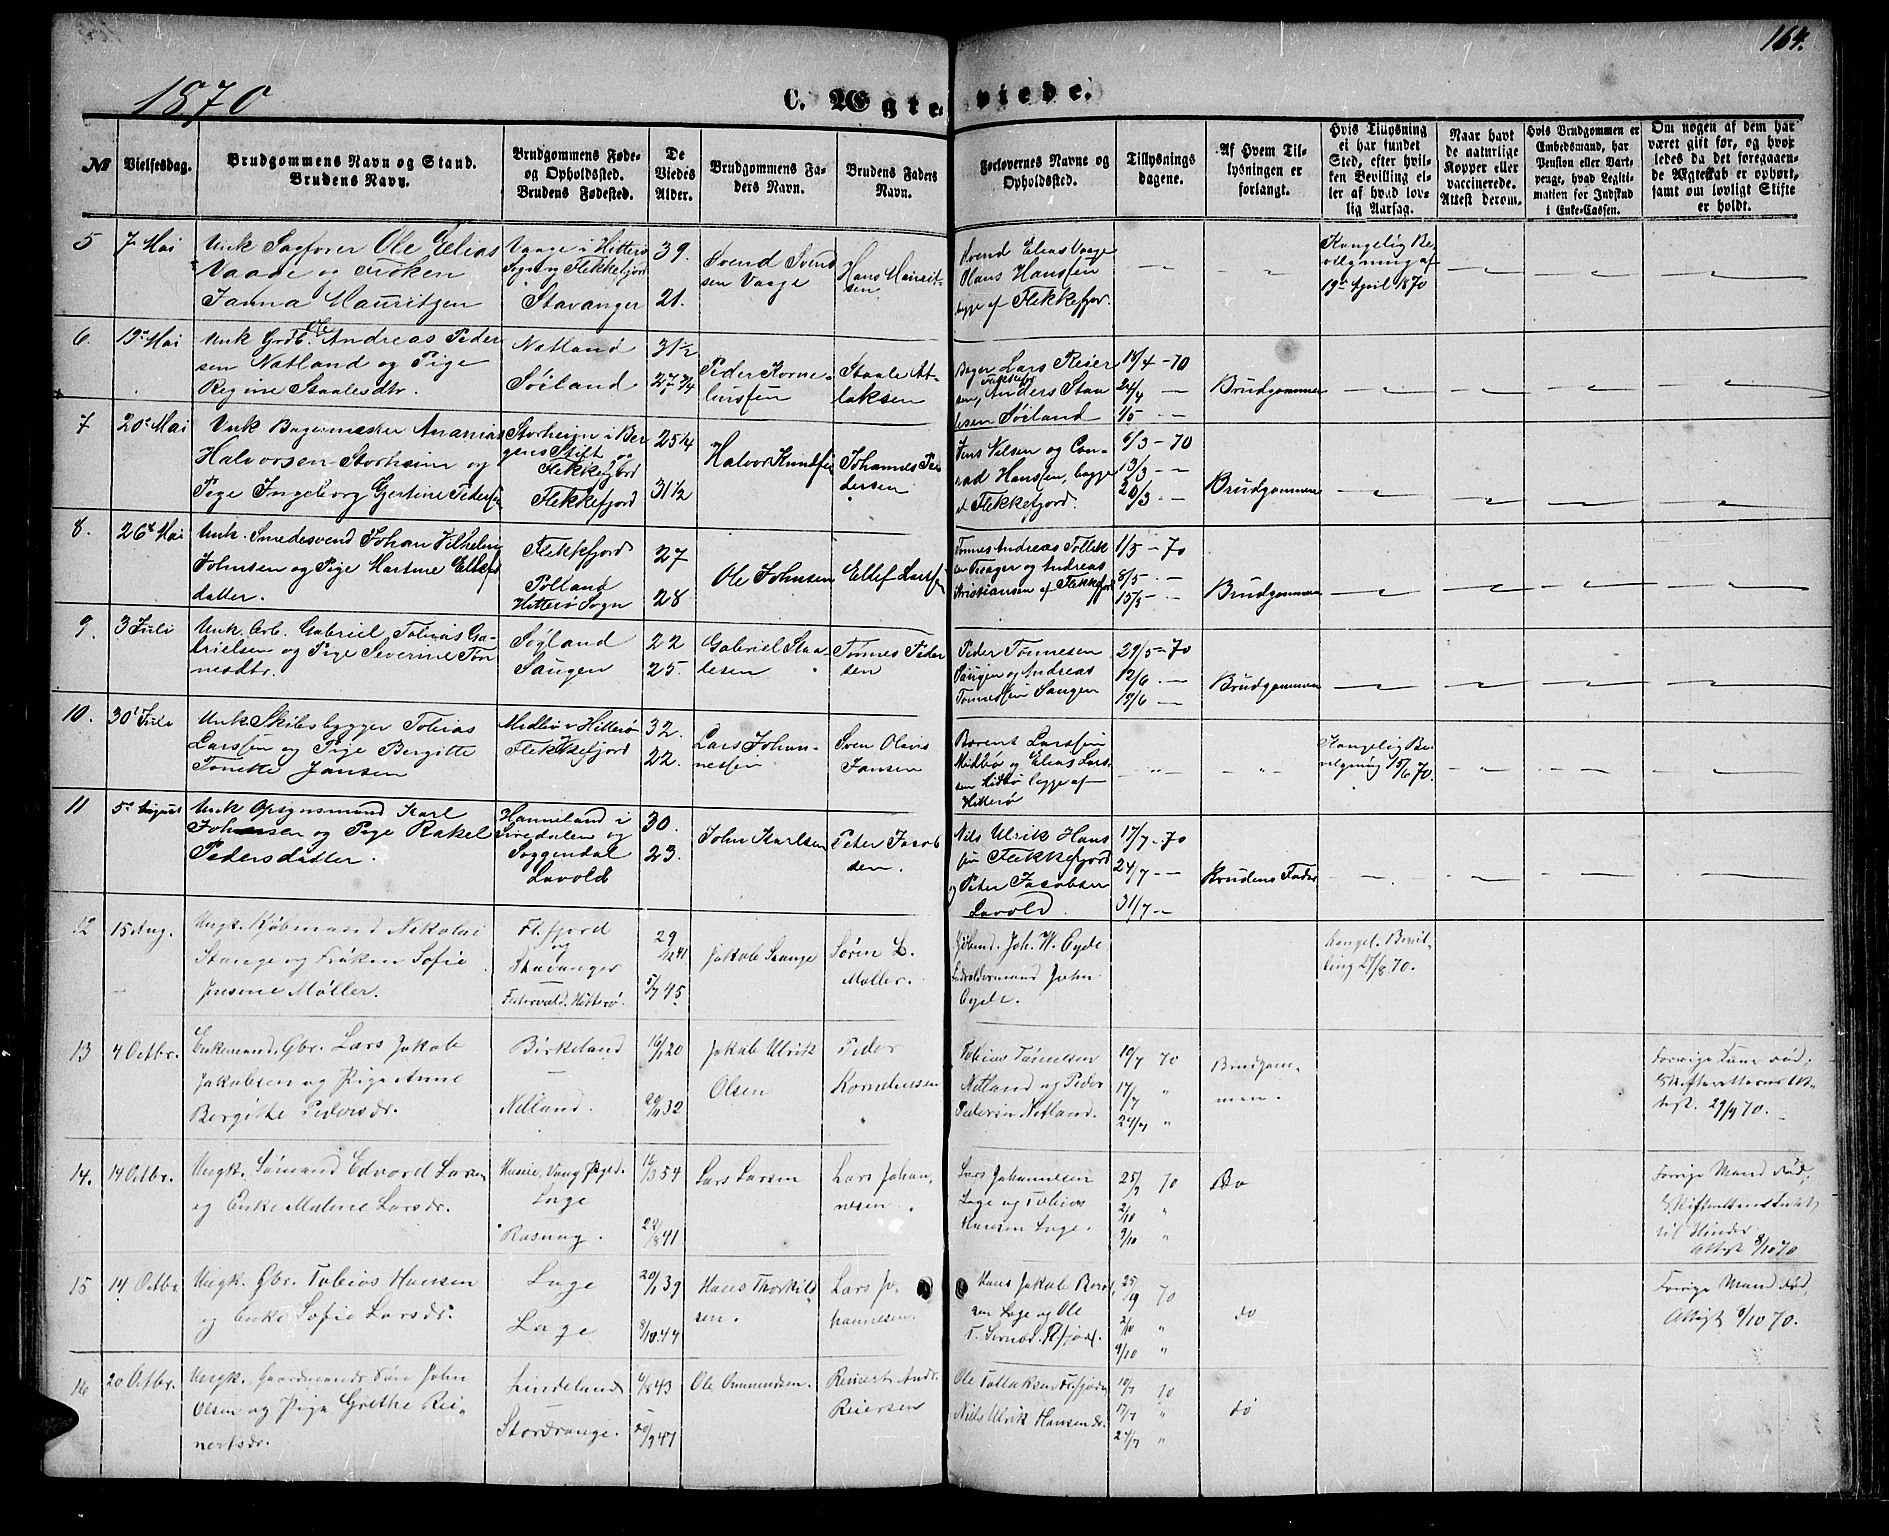 164.
1870
C. Ægtevivde.
№
Vielsesdag.
Brudgommens Navn og Stand.
Brudens Navn.
Brudgommens Føde-
og Opholdssted.
Brudens Fødested.
De
Viedes
Alder.
Brudgommens Fa-
ders Navn.
Brudens Faders
Navn.
Forlovernes Navne og
Opholdssted.
Tillysnings
dagene.
Af Hvem Til-
lysningen er
forlangt.
Hvis Tillysning
ei har fundet
Sted, efter hvil-
ken Bevilling el-
ler af hvad lov-
lig Aarsag.
Naar havt
de naturlige
Kopper eller
vaccinerede.
Attest derom.
Hvis Brudgommen er
Embedsmand, har
Pension eller Vart-
penge, hvad Legiti-
mation for Indskud
i Enke-Cassen.
Om nogen af dem har
været gift før, og hvor-
ledes da det foregaaen-
de Ægteskab er ophørt,
samt om lovligt Skifte
er holdt.
5
7 Mai
Unk Sagfører Ole Elias
Vaage og Frøken
Janna Mauritzen
Vaage i Hitterø
Sogn og Flekkefjord
Stavanger
39.
21.
Svend Svend
sen Vaage
Hans Maurit-
sen
Svend Elias Vaage
Olaus Hanssen
begge af Flekkefjor.
Kongelig Be-
vilgning af
19de April 1870
6.
19de Mai
Unk Grdb. Ole Andreas Peder
sen Natland og Pige
Regine Staalesdtr.
Natland
Søiland
31½
27¾
Peder Korne-
liussen
Staale At-
laksen
Bager Lars Reier
sen, Flekkefj. Anders Staa
lesen Søiland
18/4 - 70
24/4 -
1/5 - -
Brudgommen
7
20de Mai
Unk Bagermester Ananias
Halvorsen Storheim og
Pige Ingeborg Gjertine Peders
Storheim i Ber
gens Stift og
Flekkefjord
Flekkefjord
25¼
31½
Halvor Knudsen
Johannes Pe
dersen
Jens Nilsen og Con-
rad Hanssen, begge
af Flekkefjord.
6/3 - 70
13/3 - -
20/3 - -
Brudgommen
8.
26de Mai
Unk. Smedesvend Johan Vilhelm
Johnsen og Pige Martine Ellefs
datter.
Flekkefjord
Polland
Hitterø Sogn
27
28
Ole Johnsen
Ellef Larssen
Tønnes Andreas Tollek
sen og Andreas
Kristiansen af Flekkefjord
1/5 - 70
8/5 - -
15/5 - -
Brudgommen
9.
3 Juli
Unk. Arb. Gabriel Tobias Ga-
brielsen og Pige Severine Tøn
nesdtr.
Søyland
Saugen
22
25.
Gabriel Staa-
lesen
Tønnes Peder
sen
Peder Tønnesen
Saugen og Andreas
Tønnessen Saugen
29/5 - 70
12/6 - -
19/6 - -
Brudgommen
10.
30 Juli
Unk Skibsbygger Tobias
Larssen og Pige Bergitte
Tonette Jansen
Midbø i Hitterø
Flekkefjord
32.
22.
Lars Johan-
nessen
Sven Olaus
Jansen
Berent Larssen
Midbø og Elias Lars-
sen Hitterø begge af
Hitterø
Kongelig Be-
vilgning 15/6 70.
11
5te August
Unk Opsynsmand Karl
Johnsen og Pige Rakel
Pedersdatter.
Hanneland i
Siredalen og
Soggendal
Lavold
30.
23.
John Karlsen
Peter Jacob
sen.
Nils Ulrik Hans
sen Flekkefjord
og Peter Jacobsen
Lavold.
17/7 - 70
24/7 -
31/7 -
Brudens Fader
12
15 Aug.
Ungk. Kjøbmand Nikolai
Stange og Frøken Sofie
Jensine Møller.
Fl.fjord
og
Stavanger
Hitterø.
29/12 41
5/7 45
Jakob Stange
Søren L.
Møller.
Kjøbmd. Joh. W. Eyde
John
Eyde.
Kongel. Bevil-
ling 27/8 70.
13
4 Octbr.
Enkemand. Gbr. Lars Jakob
Jakobsen og Pige Anne
Bergithe Pedersdr.
Birkeland
Netland.
16/1 20
29/1 32
Jakob Ulrik
Olsen
Peder
Korneliussen
Tobias Tønnesen
Netland og Peder
Pedersen Netland.
10/7 70
17/7 "
24/7 "
Brudgom-
men.
Forrige Kone død;
Skifterettens At-
test. 29/9 70.
14.
14 Octbr.
Ungk. Sømand Edvard Larsen
og Enke Malene Larsdr.
Lage
Rasvaag.
16/3 54
28/8 41
Lars Larsen
Lars Johan-
nesen.
Lars Johannesen
Lage og Tobias
Hansen Lage.
25/9 70
2/10 "
9/10 "
Do
Forrige Mand død;
Attest 8/10 70
15
14 Octbr
Ungk. Gbr. Tobias Hansen
og Enke Sofie Larsdr.
Lage
Lage
20/1 39
8/10 44
Hans Thorkild
sen.
Lars Jo-
hannesen.
Hans Jakob Bernt
sen Lage og Ole
25/9 70
2/10 "
9/10 "
do
Forrige Mand død,
Attest 8/10 70.
16
20 Octbr.
Ungk. Gaardmands Søn John
Olsen og Pige Grethe Rei-
nertsdr.
Lindeland
Stordrange.
4/8 43
20/9 47
Ole Ommundsen.
Reinert Andr.
Reiersen
Ole Tollaksen
Niels Ulrik Hansen dr.
10/7 70
17/7 "
24/7 "
do